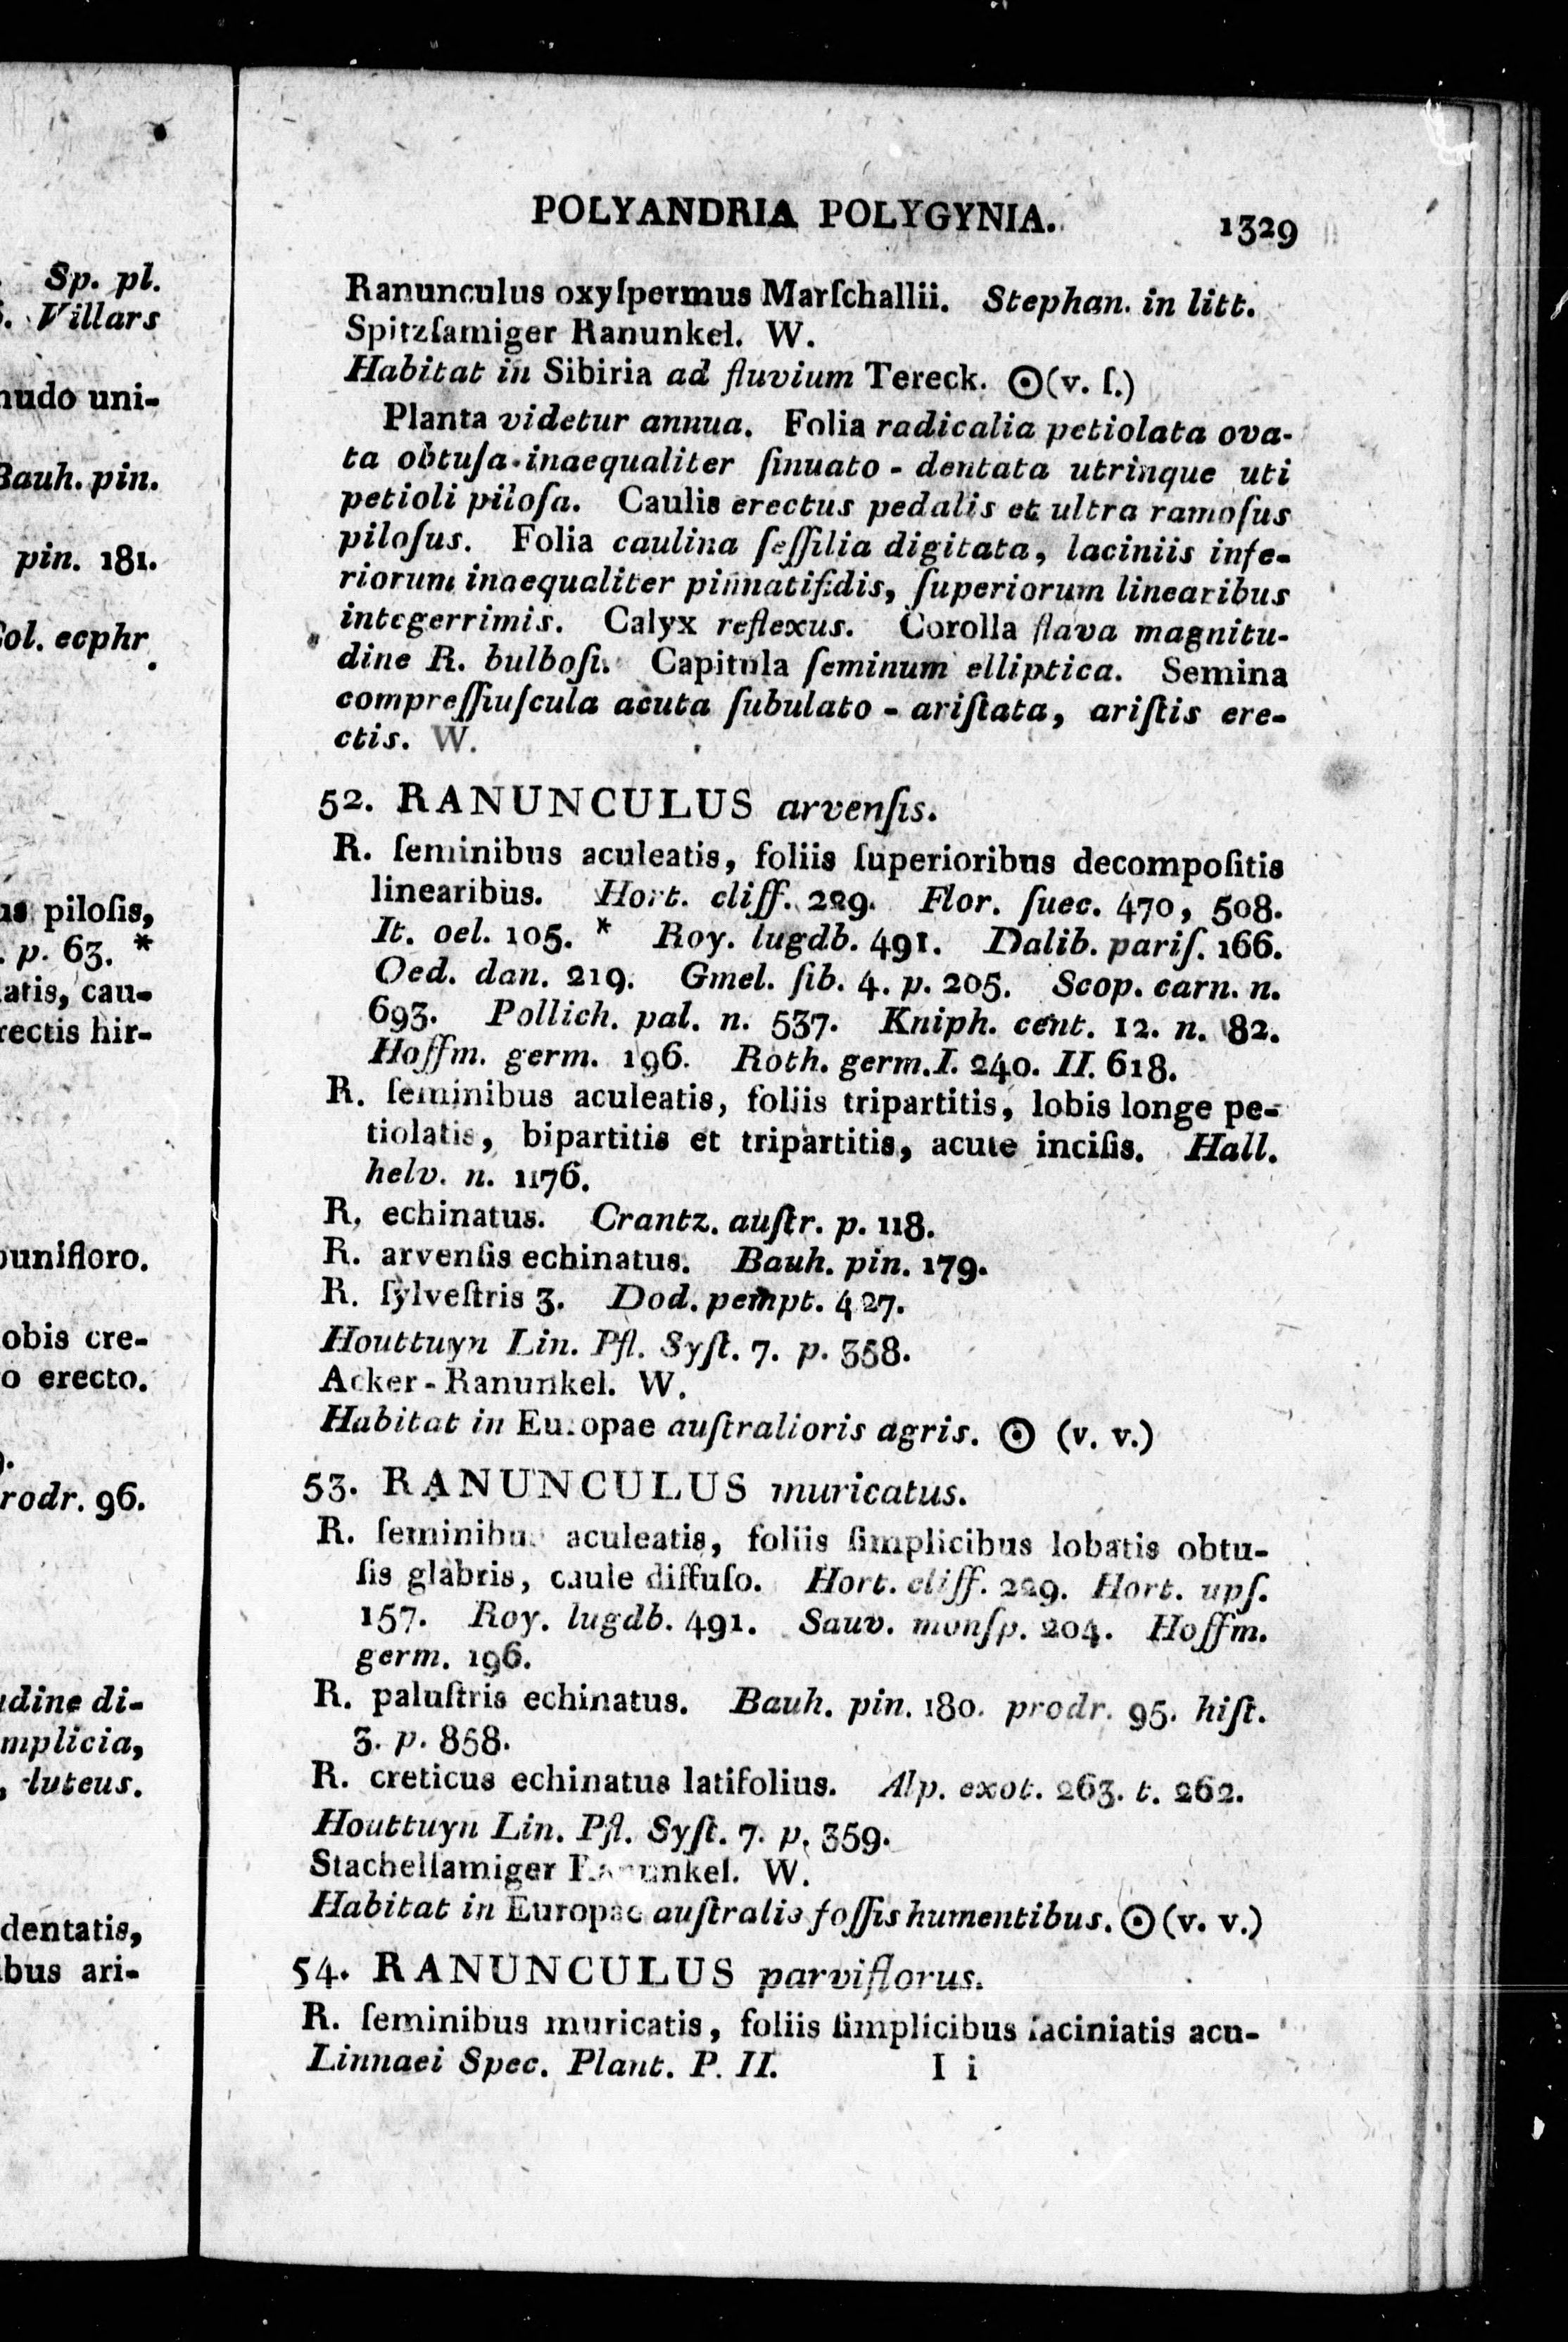 Sp. pl.
Villars
nudo uni-
Bauh. pin.
pin. 181.
Col. ecphr
us piloſis,
p. 63. *
latis, cau-
rectis hir-
unifloro.
lobis cre-
o erecto.
rodr. 96.
udine di-
mplicia,
, luteus.
dentatis,
ibus ari-
POLYANDRIA POLYGYNIA. 1329
Ranunculus oxyſpermus Marſchallii. Stephan. in litt.
Spitzſamiger Ranunkel. W.
Habitat in Sibiria ad fluvium Tereck. ☉ (v. ſ.)
Planta videtur annua. Folia radicalia petiolata ova-
ta obtuſa inaequaliter ſinuato - dentata utrinque uti
petioli piloſa. Caulis erectus pedalis et ultra ramoſus
piloſus. Folia caulina ſeſſilia digitata, laciniis infe-
riorum inaequaliter pinnatifidis, ſuperiorum linearibus
integerrimis. Calyx reflexus. Corolla flava magnitu-
dine R. bulboſi. Capitula ſeminum elliptica. Semina
compreſſiuſcula acuta ſubulato - ariſtata, ariſtis ere-
ctis. W.
52. RANUNCULUS arvenſis.
R. ſeminibus aculeatis, foliis ſuperioribus decompoſitis
linearibus. Hort. cliff. 229. Flor. ſuec. 470, 508.
It. oel. 105. * Roy. lugdb. 491. Dalib. pariſ. 166.
Oed. dan. 219. Gmel. ſib. 4. p. 205. Scop. carn. n.
693. Pollich. pal. n. 537. Kniph. cent. 12. n. 82.
Hoffm. germ. 196. Roth. germ. I. 240. II. 618.
R. ſeminibus aculeatis, foliis tripartitis, lobis longe pe-
tiolatis, bipartitis et tripartitis, acute inciſis. Hall.
helv. n. 1176.
R. echinatus. Crantz. auſtr. p. 118.
R. arvenſis echinatus. Bauh. pin. 179.
R. ſylveſtris 3. Dod. pempt. 427.
Houttuyn Lin. Pfl. Syſt. 7. p. 358.
Acker - Ranunkel. W.
Habitat in Europae auſtralioris agris. ☉ (v. v.)
53. RANUNCULUS muricatus.
R. ſeminibus aculeatis, foliis ſimplicibus lobatis obtu-
ſis glabris, caule diffuſo. Hort. cliff. 229. Hort. upſ.
157. Roy. lugdb. 491. Sauv. monſp. 204. Hoffm.
germ. 196.
R. paluſtris echinatus. Bauh. pin. 180. prodr. 95. hiſt.
3. p. 858.
R. creticus echinatus latifolius. Alp. exot. 263. t. 262.
Houttuyn Lin. Pfl. Syſt. 7. p. 359.
Stachelſamiger Ranunkel. W.
Habitat in Europae auſtralis foſſis humentibus. ☉ (v. v.)
54. RANUNCULUS parviflorus.
R. ſeminibus muricatis, foliis ſimplicibus laciniatis acu-
Linnaei Spec. Plant. P. II. I i